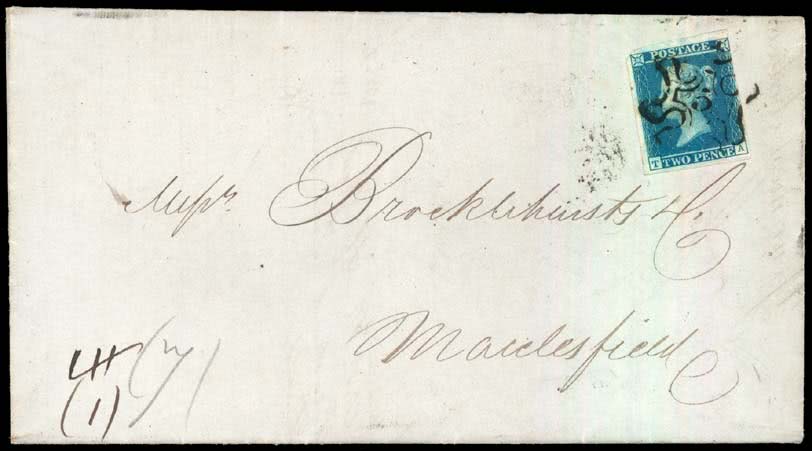 POSTAGE
5
T TWO PENCE A
Messrs. Brocklehursts & Co
Macclesfield
(1)